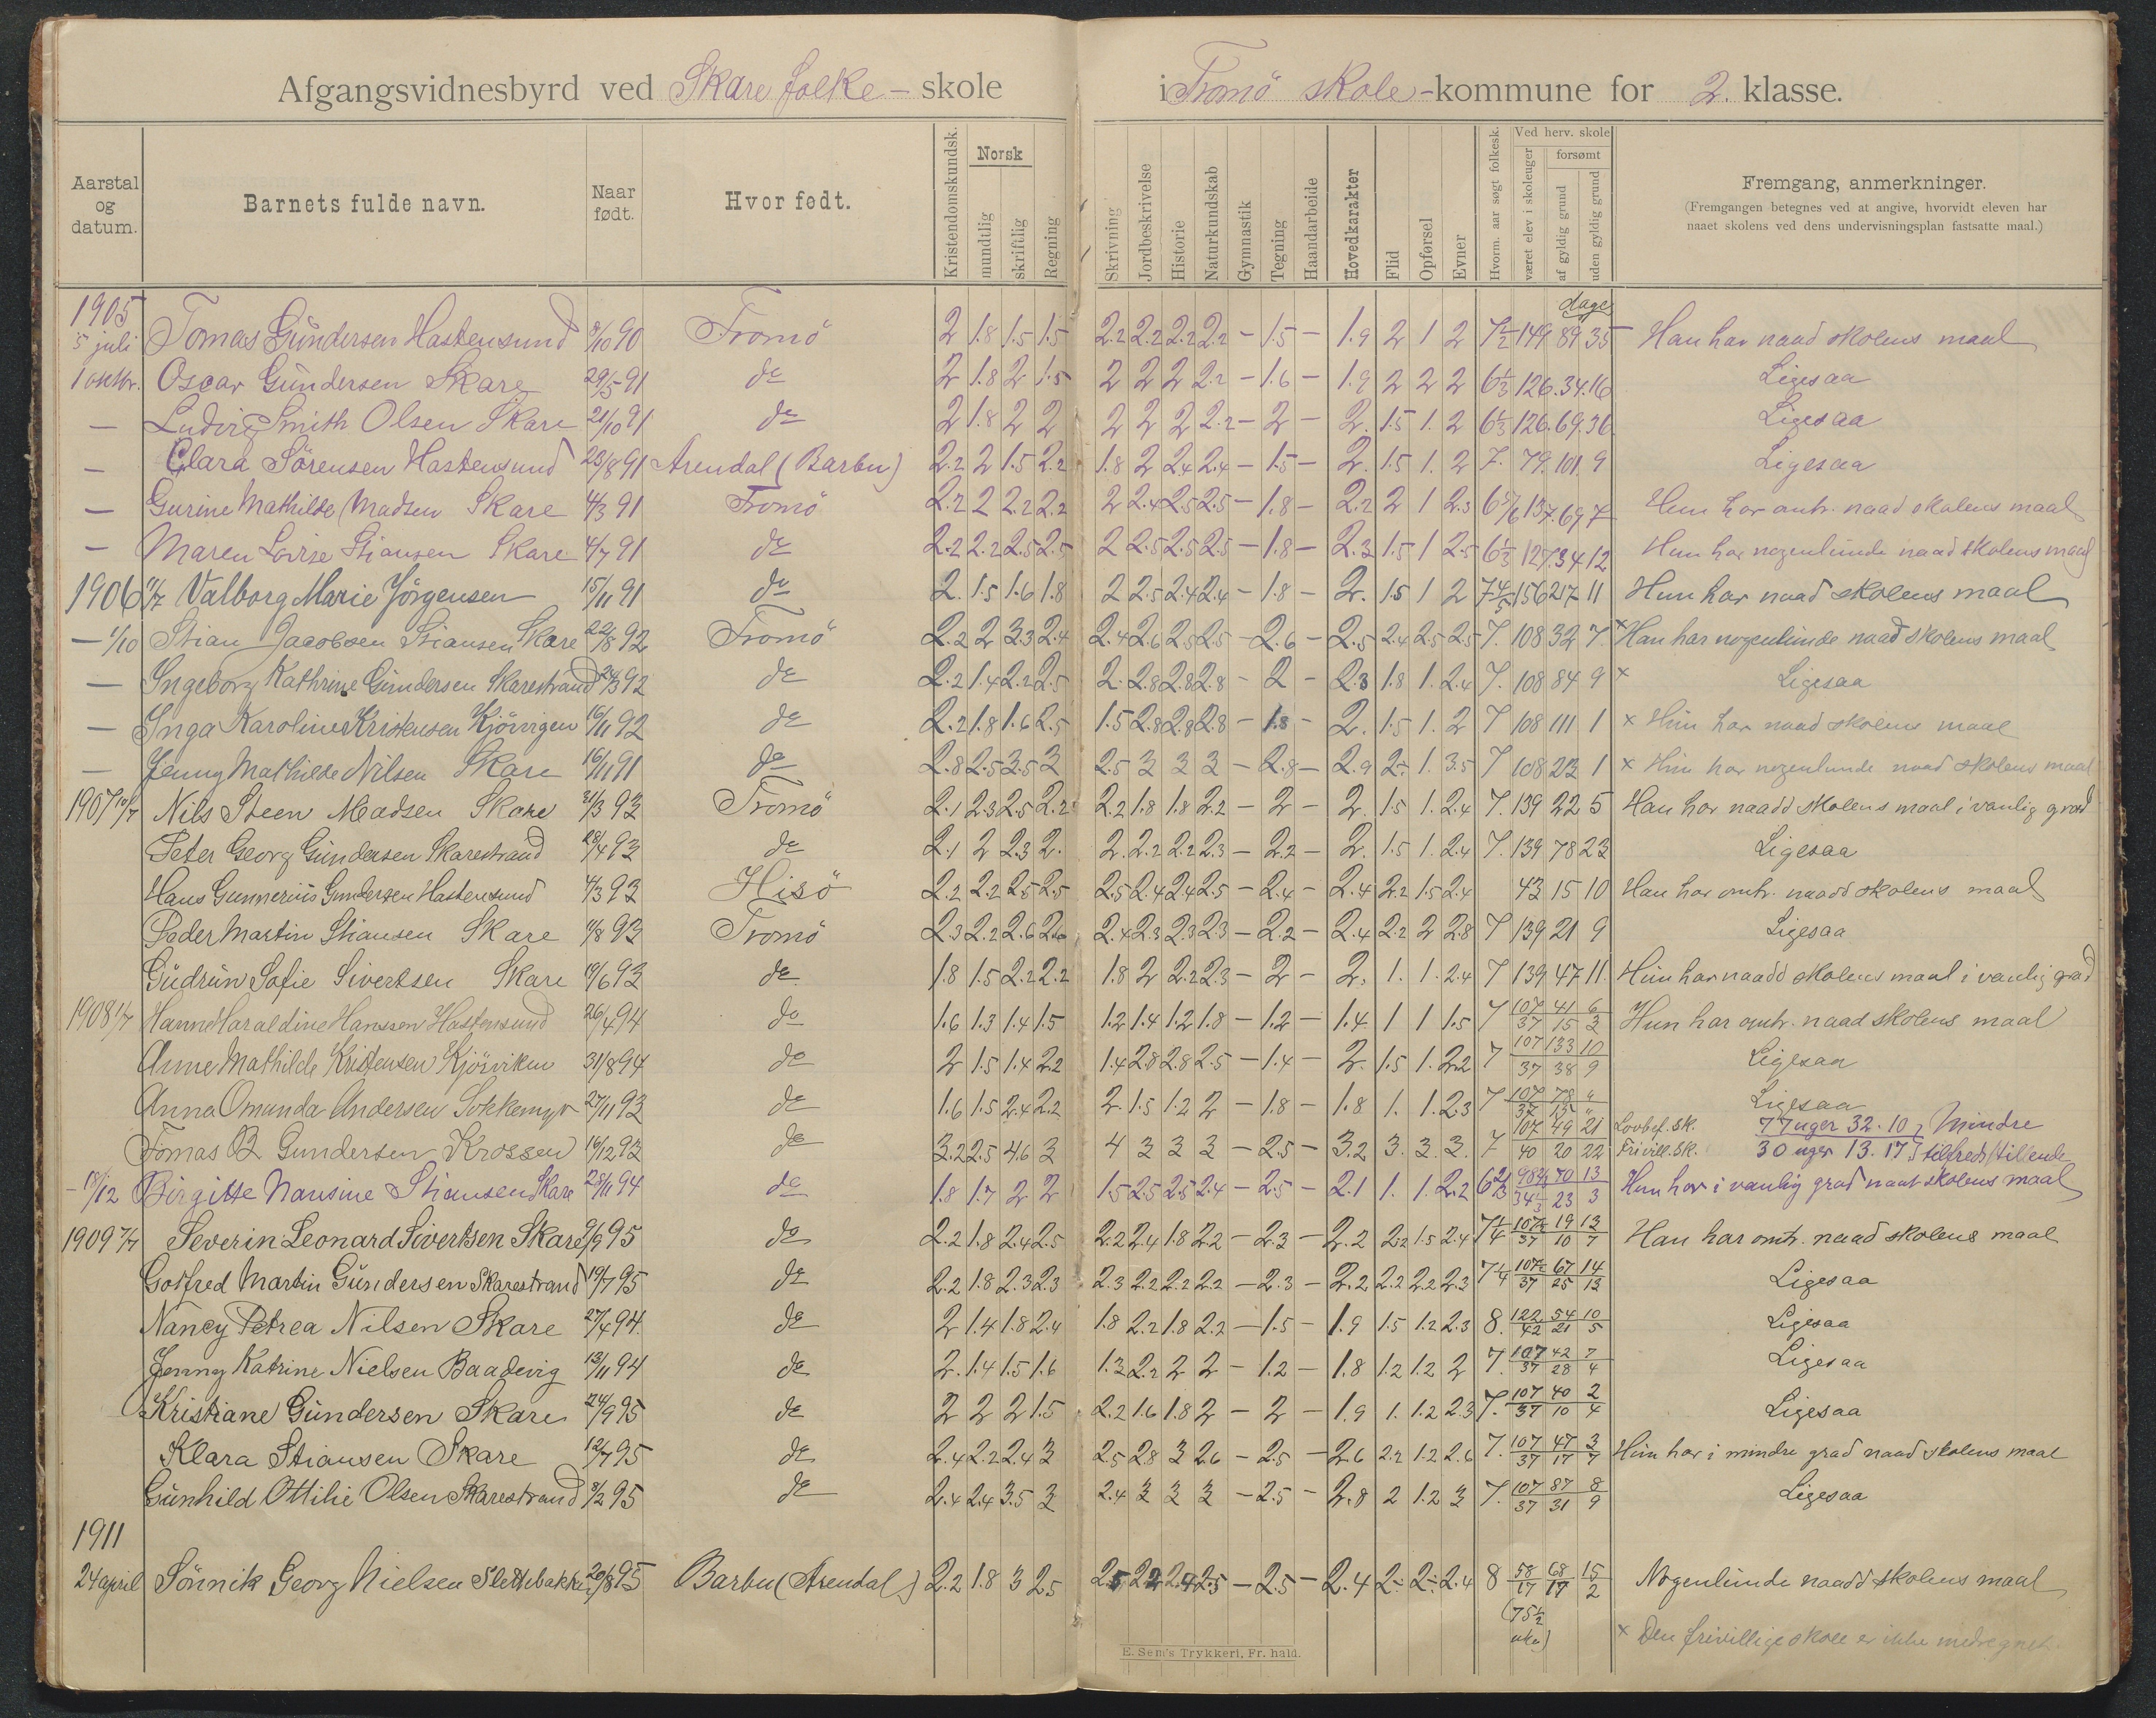 Afgangsvidnesbyrd ved Skare folke- skole i Tromö skole-kommune for 2. klasse.
Aarstal og datum. Barnets fulde navn. Naar født. Hvor født. Kristendomskundsk. Norsk mundtlig skriftlig Regning Skrivning Jordbeskrivelse Historie Naturkundskab Gymnastik Tegning Haandarbeide Hovedkarakter Flid Opførsel Evner Hvorm. aar søgt folkesk. Ved herv. skole været elev i skoleuger forsømt af gyldig grund uden gyldig grund Fremgang, anmerkninger.
(Fremgangen betegnes ved at angive, hvorvidt eleven har
naaet skolens ved dens undervisningsplan fastsatte maal.)
1905 dage
5 juli Tomas Gundersen Hastensund 8/10 90 Tromö 2 1.8 1.5 1.5 2.2 2.2 2.2 2.2 - 1.5 - 1.9 2 1 2 7 1/2 149 89 35 Han har naad skolens maal
1 oktbr. Oscar Gundersen Skare 29/5 91 do 2 1.8 2 1.5 2 2 2 2.2 - 1.6 - 1.9 2 2 2 6 1/3 126. 34. 16 Ligesaa
— Ludvig Smith Olsen Skare 21/10 91 do 2 1.8 2 2 2 2 2 2.2 - 2 - 2. 1.5 1. 2 6 1/3 126. 69. 36 Ligesaa
— Clara Sörensen Hastensund 23/8 91 Arendal (Barbu) 2.2 2 1.5 2.2 1.8 2 2.4 2.4 - 1.5 - 2. 1.5 1. 2 7. 79. 101. 9 Ligesaa
— Gurine Mathilde Madsen Skare 4/3 91 Tromö 2.2 2 2.2 2.2 2 2.4 2.5 2.5 - 1.8 - 2.2 2 1 2.3 6 5/6 137. 69 7 Hun har omtr. naad skolens maal
— Maren Lovise Stiansen Skare 4/7 91 do 2.2 2.2 2.5 2.5 2 2.5 2.5 2.5 - 1.8 - 2.3 1.5 1 2.5 6 1/3 127. 34 12 Hun har nogenlunde naad skolens maal
1906 11/7 Valborg Marie Jörgensen 15/11 91 do 2. 1.5 1.6 1.8 2 2.5 2.4 2.4 - 1.8 - 2. 1.5 1 2 7 4/5 156 217 11 Hun har naad skolens maal
— 1/10 Stian Jacobsen Stiansen Skare 22/8 92 Tromö 2.2 2 2.3 2.4 2.4 2.6 2.5 2.5 - 2.6 - 2.5 2.4 2.5 2.5 7. 108 32 7. × Han har nogenlunde naad skolens maal
— Ingeborg Kathrine Gundersen Skarestrand 26/3 92 do 2.2 1.4 2.2 2.5 2. 2.8 2.8 2.8 - 2 - 2.3 1.8 1. 2.4 7. 108 84 9 × Ligesaa
— Inga Karoline Kristensen Kjörvigen 16/11 92 do 2.2 1.8 1.6 2.5 1.5 2.8 2.8 2.8 - 1.8 - 2. 1.5 1. 2 7 108 111 1 × Hun har naad skolens maal
— Jenny Mathilde Nilsen Skare 16/11 91 do 2.8 2.5 3.5 3 2.5 3 3 3 - 2.8 - 2.9 2÷ 1. 3.5 7 108 23 1 × Hun har nogenlunde naad skolens maal
1907 10/7 Nils Steen Madsen Skare 31/3 93 Tromö 2.1 2.3 2.5 2.2 2.2 1.8 1.8 2.2 - 2 - 2. 1.5 1. 2.4 7. 139 22 5 Han har naadd skolens maal i vanlig grad
Peter Georg Gundersen Skarestrand 28/4 93 do 2.1 2 2.3 2. 2. 2.2 2.2 2.3 - 2.2 - 2. 1.5 1. 2.4 7. 139 78 23 Ligesaa
Hans Gunnerius Gundersen Hastensund 4/3 93 Hisö 2.2 2.2 2.5 2.5 2.5 2.4 2.4 2.5 - 2.4 - 2.4 2.2 1.5 2.4 43 15 10 Han har omtr. naadd skolens maal
Peder Martin Stiansen Skare 11/8 93 Tromö 2.3 2.2 2.6 2.6 2.4 2.3 2.3 2.3 - 2.2 - 2.4 2.2 2 2.8 7 139 21 9 Ligesaa
Gudrun Sofie Sivertsen Skare 19/6 93 do 1.8 1.5 2.2 2.2 1.8 2 2.2 2.3 - 2 - 2. 1. 1. 2.4 7 139 47 11. Hun har naadd skolens maal i vanlig grad
1908 1/7 Hanne Haraldine Hanssen Hastensund 26/4 94 do 1.6 1.3 1.4 1.5 1.2 1.4 1.2 1.8 - 1.2 - 1.4 1 1 1.5 7 107/37 41/15 6/3 Hun har omtr. naad skolens maal
Anne Mathilde Kristensen Kjörviken 31/8 94 do 2 1.5 1.4 2.2 1.4 2.8 2.8 2.5 - 1.4 - 2. 1.5 1. 2.2 7 107/37 133/38 10/9 Ligesaa
Anna Omunda Andersen Sokkemyr 27/11 93 do 1.6 1.5 2.4 2.2 2. 1.5 1.2 2 - 1.8 - 1.8 1. 1. 2.3 7 107/37 78/15 "/" Ligesaa
Tomas B Gundersen Krossen 16/12 93 do 3.2 2.5 4.6 3 4 3 3 3 - 2.5 - 3.2 3. 3. 3. 7 107/40 49/20 21/22 Lovbef. sk. 77 uger 32. 10 } Mindre
Frivill. sk. 30 uger 13. 17 } tilfredsstillende
— 18/12 Birgitte Nansine Stiansen Skare 28/11 94 do 1.8 1.7 2 2 1.5 2.5 2.5 2.4 - 2.5 - 2.1 1. 1. 2.2 6 2/3 98 2/3/34 1/3 70/23 13/3 Hun har i vanlig grad naat skolens maal
1909 7/7 Severin Leonard Sivertsen Skare 9/9 95 do 2.2 1.8 2.4 2.5 2.2 2.4 1.8 2.2 - 2.3 - 2.2 2.2 1.5 2.4 7 1/4 107 1/2/37 19/10 13/7 Han har omtr. naad skolens maal
Gotfred Martin Gundersen Skarestrand 19/7 95 do 2.2 1.8 2.3 2.3 2.3 2.2 2.2 2.2 - 2.3 - 2.2 2.2 2.2 2.3 7 1/4 107 1/2/37 67/25 14/13 Ligesaa
Nancy Petrea Nilsen Skare 27/4 94. do 2 1.4 1.8 2.4 1.8 2.2 1.8 2.2 - 1.5 - 1.9 1.5 1.2 2.3 8. 122/42 54/21 10/5 Ligesaa
Jenny Katrine Nielsen Baadevig 13/11 94 do 2. 1.4 1.5 1.6 1.3 2.2 2 2 - 1.2 - 1.8 1.2 1.2 2 7. 107/37 42/28 7/4 Ligesaa
Kristiane Gundersen Skare 24/9 95 do 2 2 2 1.5 2.2 1.6 1.8 2 - 2 - 1.9 1. 1.2 2.3 7. 107/37 40/10 2/4 Ligesaa
Klara Stiansen Skare 12/7 95 do 2.4 2.2 2.4 3 2.5 2.8 3 2.6 - 2.5 - 2.6 2.2 1.2 2.6 7. 107/37 47/17 3/7 Hun har i mindre grad naad skolens maal
Gunhild Ottilie Olsen Skarestrand 8/2 95 do 2.4 2.4 3.5 3 2.4 3 3 3 - 2.5 - 2.8 2 1.2 3 7. 107/37 87/31 8/9 Ligesaa
1911
24 april Sönnik Georg Nielsen Slettebakke 20/8 95 Barbu (Arendal) 2.2 1.8 3 2.5 2.5 2.2 2.4 2.5 - 2.5 - 2.4 2÷ 2÷ 2.4 8 58/17 68/17 15/2 Nogenlunde naadd skolens maal
(75 1/2 uke)
× Den frivillige skole er ikke medregnet.
E. Sem's Trykkeri, Fr. hald.